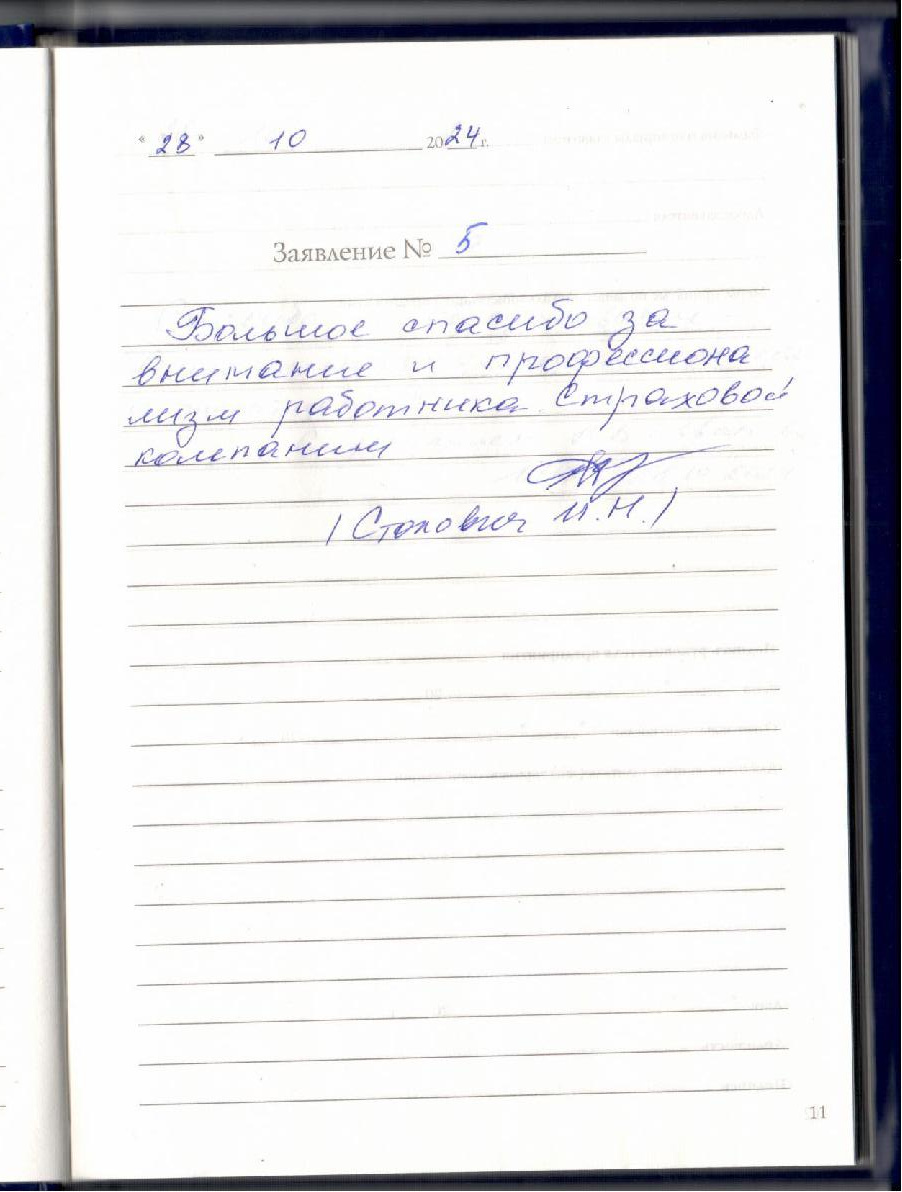 "28" 10 2024 г.
Заявление № 5
Большое спасибо за
внимание и профессиона
лизм работника страховой
компании
(Стахович И.Н.)
11